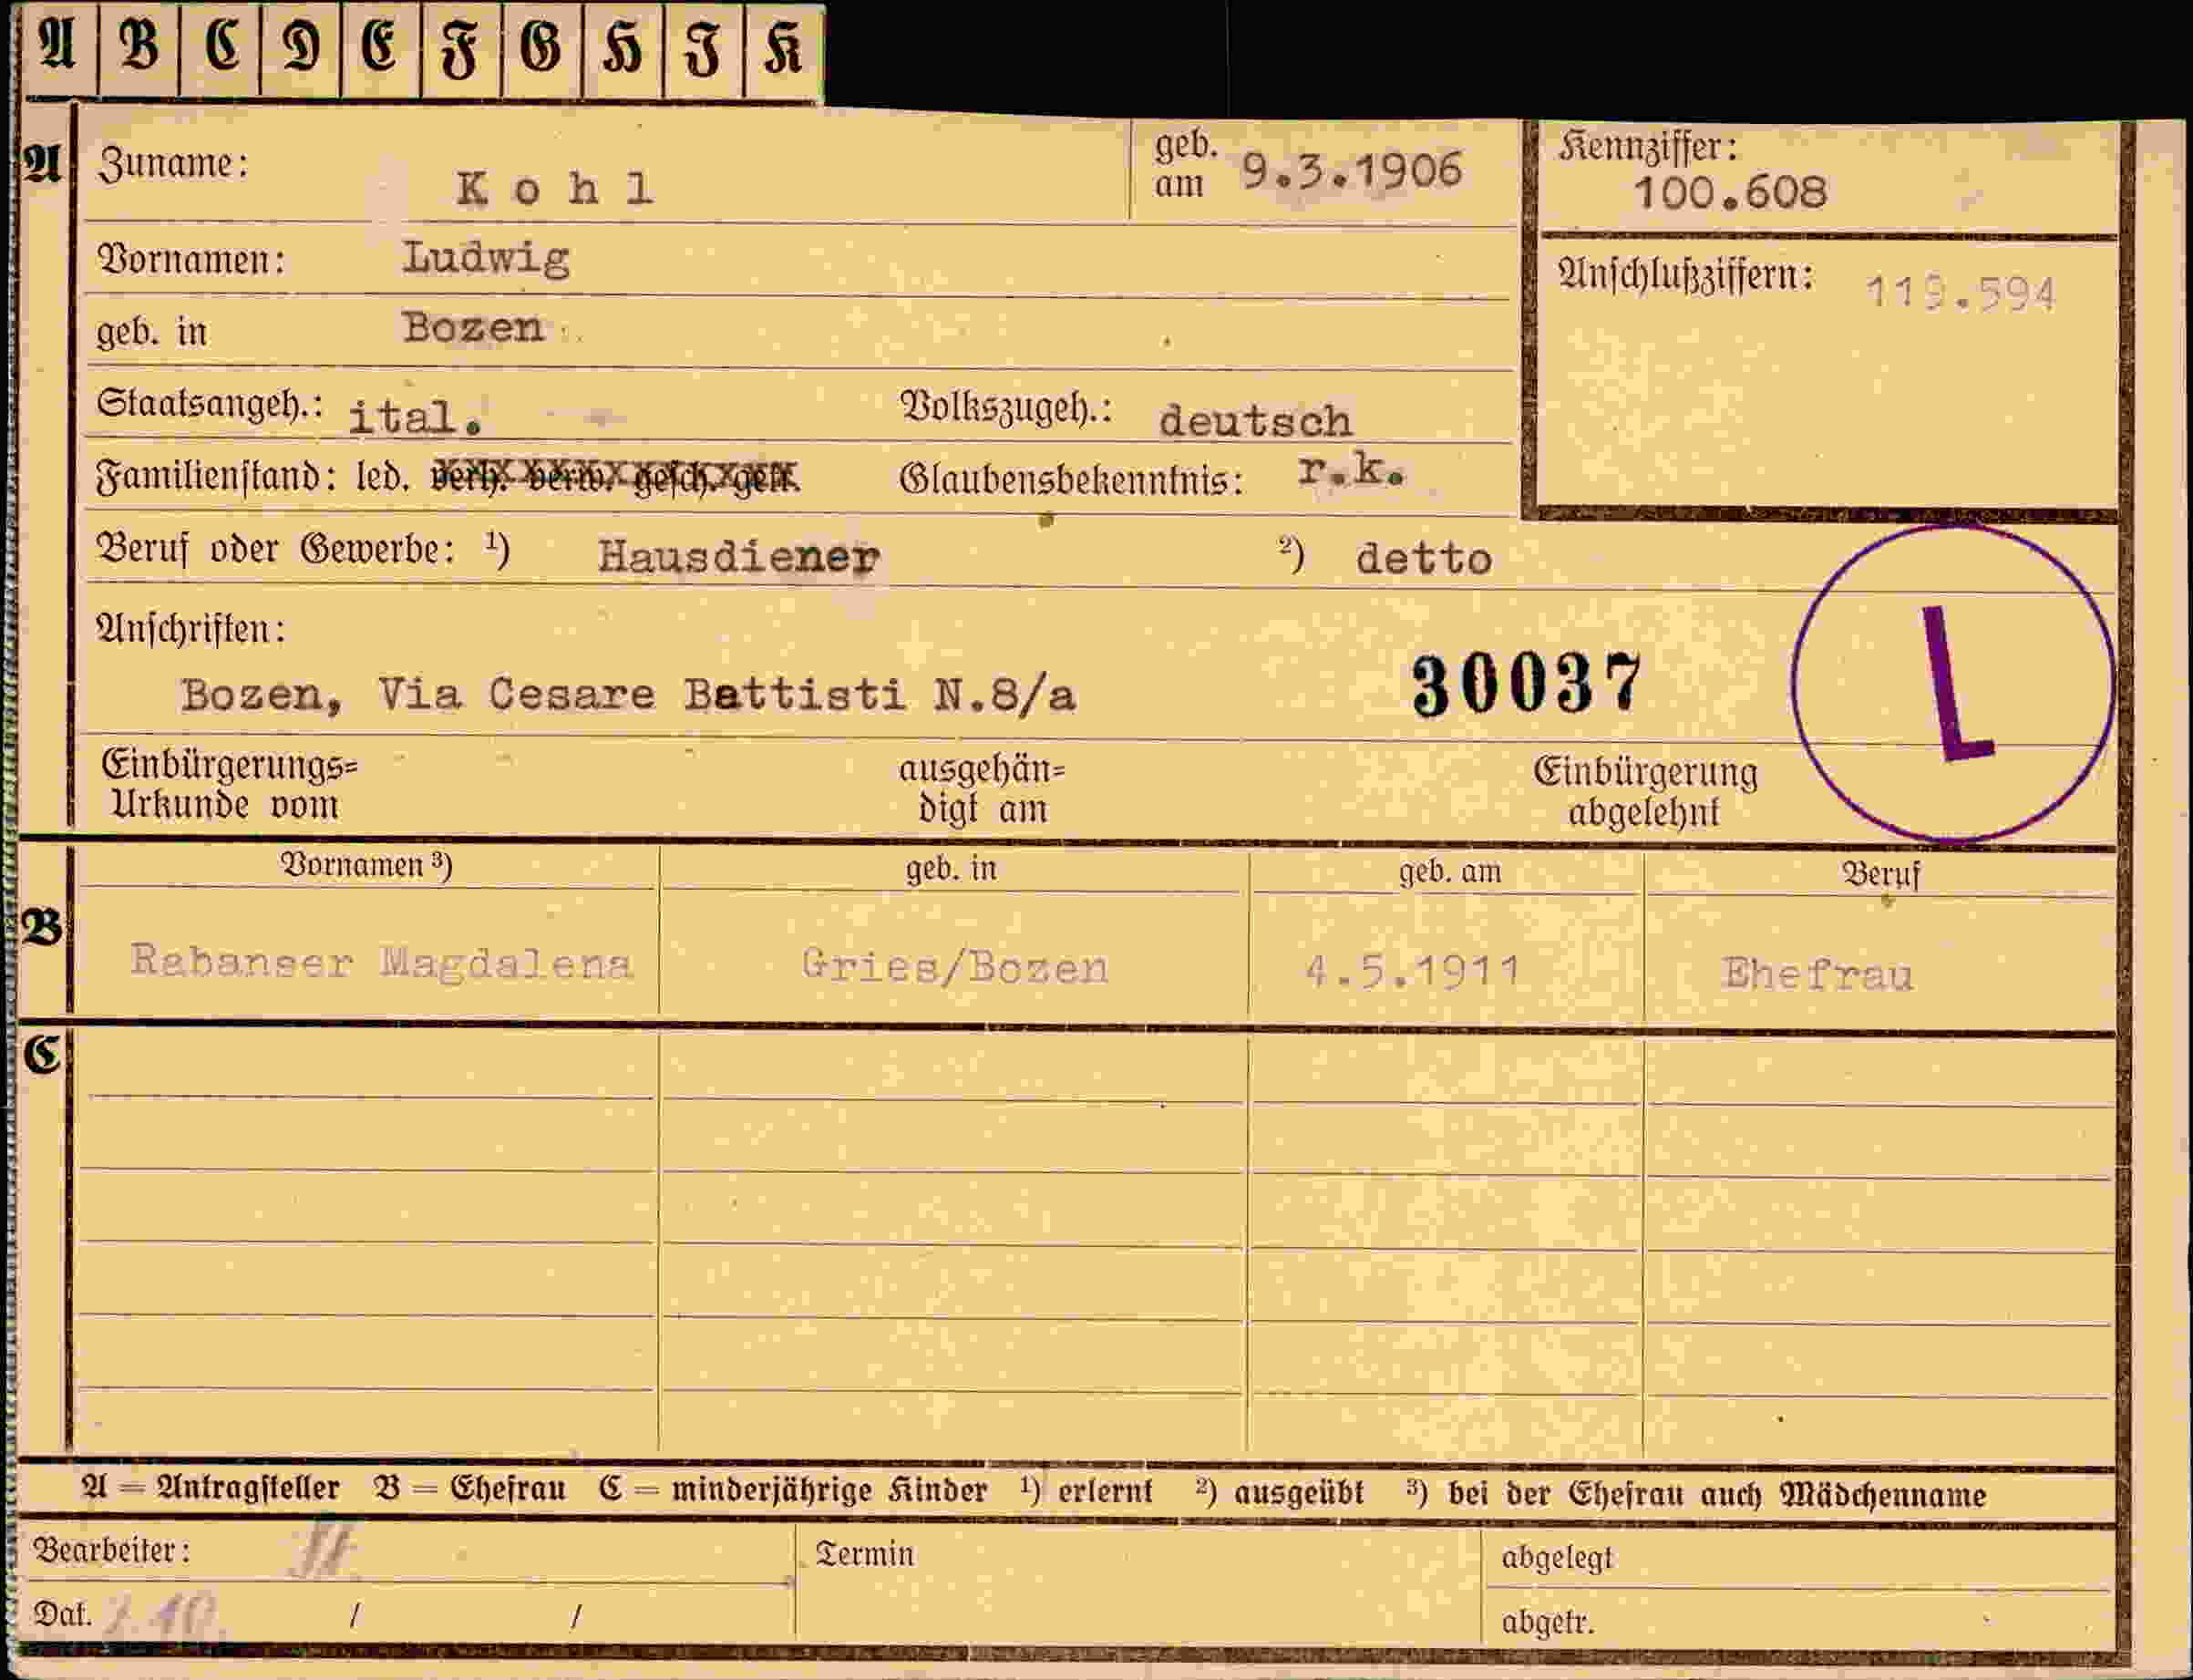 A B C D E F G H J K
A Zuname: Kohl geb. am 9.3.1906 Kennziffer: 100.608
Vornamen: Ludwig
Anschlußziffern: 119.594
geb. in Bozen
Staatsangeh.: ital. Volkszugeh.: deutsch
Familienstand: led. verh. verw. gesch. getr. Glaubensbekenntnis: r.k.
Beruf oder Gewerbe: ¹) Hausdiener ²) detto
Anschriften:
Bozen, Via Cesare Battisti N.8/a 30037 L
Einbürgerungs= ausgehän= Einbürgerung
Urkunde vom digt am abgelehnt
Vornamen ³) geb. in geb. am Beruf
B Rabanser Magdalena Gries/Bozen 4.5.1911 Ehefrau
C
A = Antragsteller B = Ehefrau C = minderjährige Kinder ¹) erlernt ²) ausgeübt ³) bei der Ehefrau auch Mädchenname
Bearbeiter: Termin abgelegt
Dat. / / abgetr.